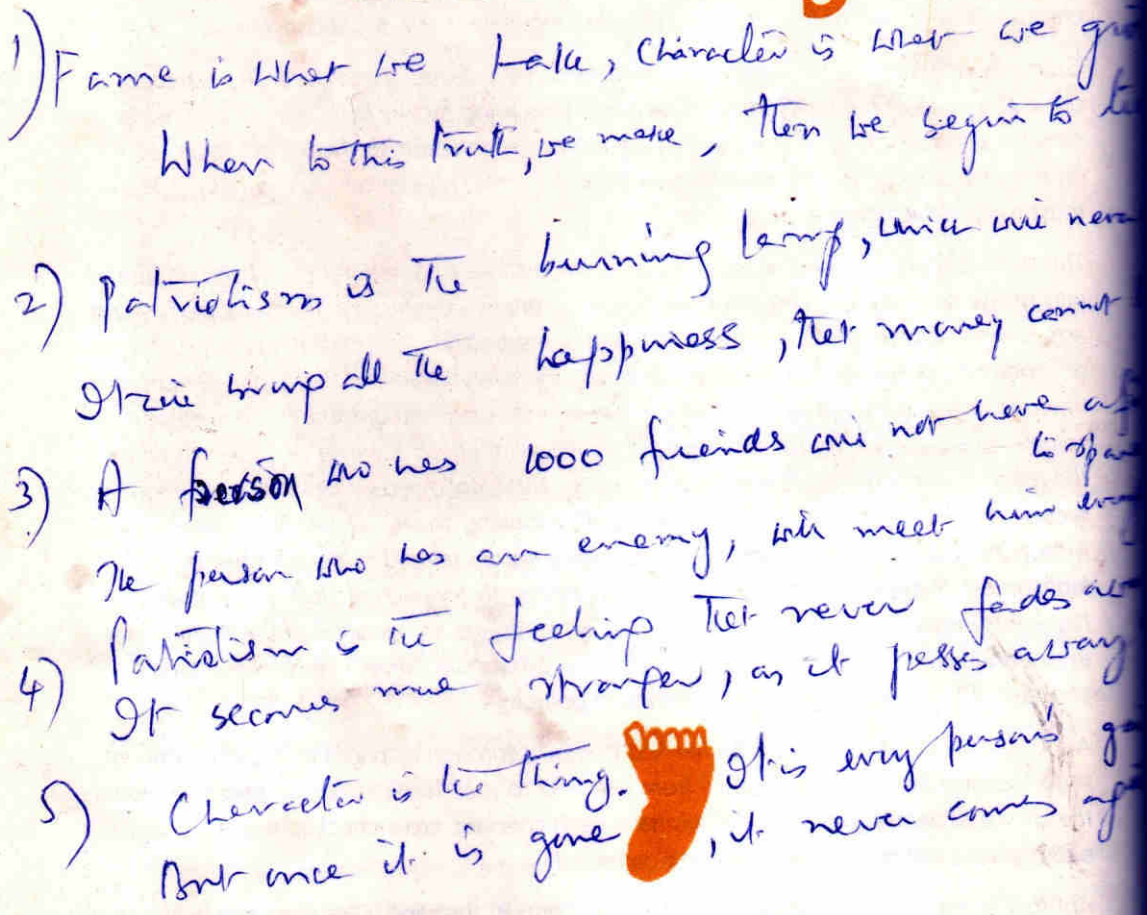 1) Fame is what we take, Character is what we
When to this truth, we make, then we begin to
2) Patriotism is the burning lamp, which will never
It will bring all the happiness, that money cannot
3) A person who has 1000 friends will not have a
to spare
The person who has an enemy, will meet him
4) Patriotism is the feeling that never fades
It becomes more stronger, as it passes away
5) Character is the thing. It is every person's
But once it is gone, it never comes